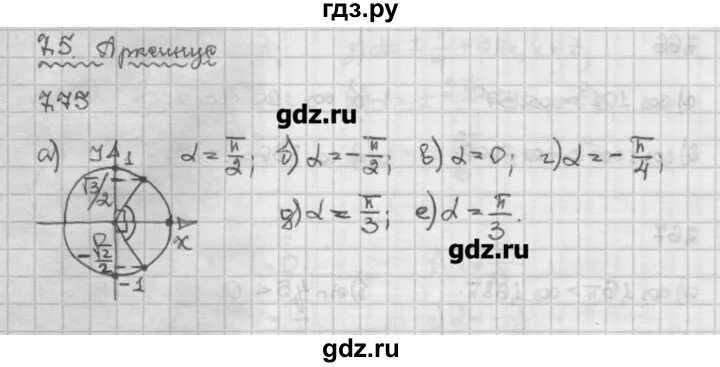 гдз.ру
7.5. Арксинус
7.75
gdz.ru
а) y 1 α = π/2; б) α = -π/2; в) α = 0; г) α = -π/4;
√3/2
д) α = π/3; е) α = π/3.
x
gdz.ru
-√2/2
-1
gdz.ru